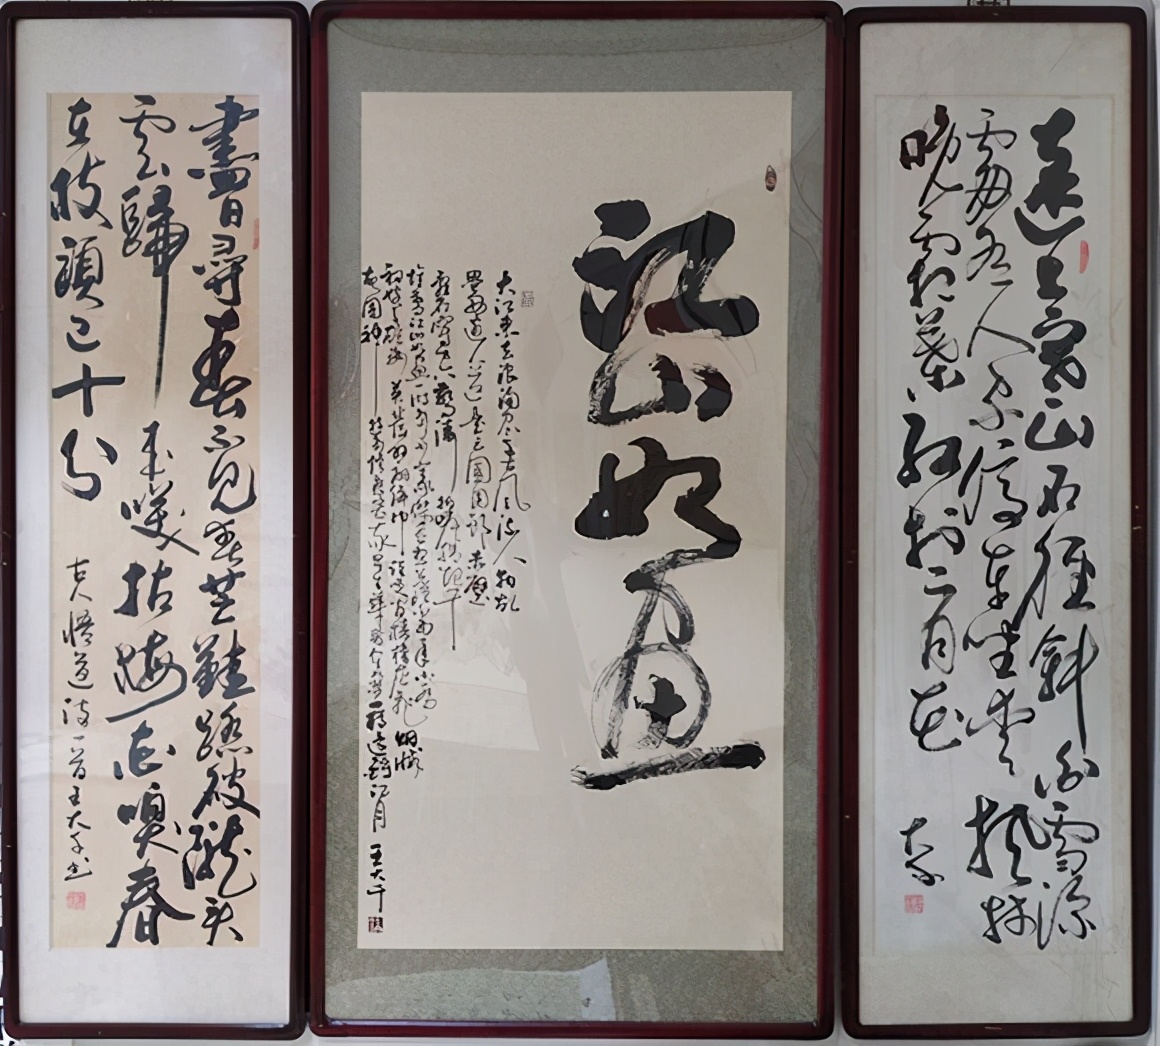 遠上寒山石徑斜白雲深
處有人家停車坐愛楓林
晚霜葉紅於二月花
大千
江山如畫
大江東去浪淘盡千古風流人物故
壘西邊人道是三國周郎赤壁
亂石穿空驚濤拍岸捲起千
堆雪江山如畫一時多少豪傑遙想公瑾當年小喬
初嫁了雄姿英發羽扇綸巾談笑間檣櫓灰飛煙滅
故國神遊多情應笑我早生華髮人生如夢一尊還酹江月
王大千
盡日尋春不見春芒鞋踏破隴頭
雲歸來笑拈梅花嗅春
在枝頭已十分
古人悟道詩一首王大千書